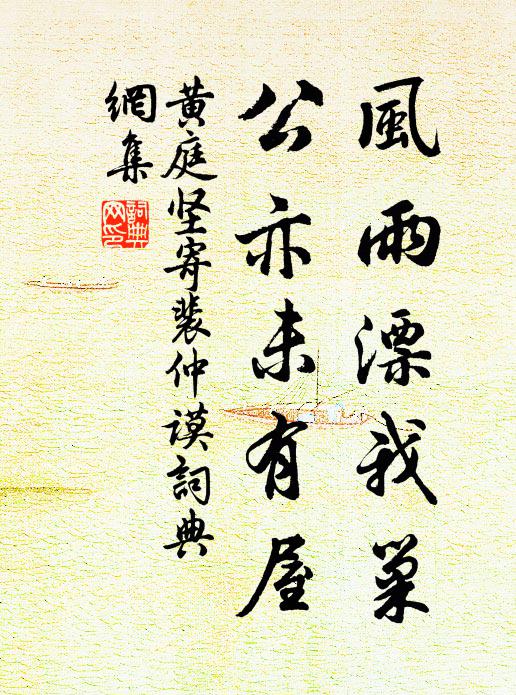 風雨漂我巢
公亦未有屋
黄庭坚寄裴仲謨詞典
網集
詞典网印